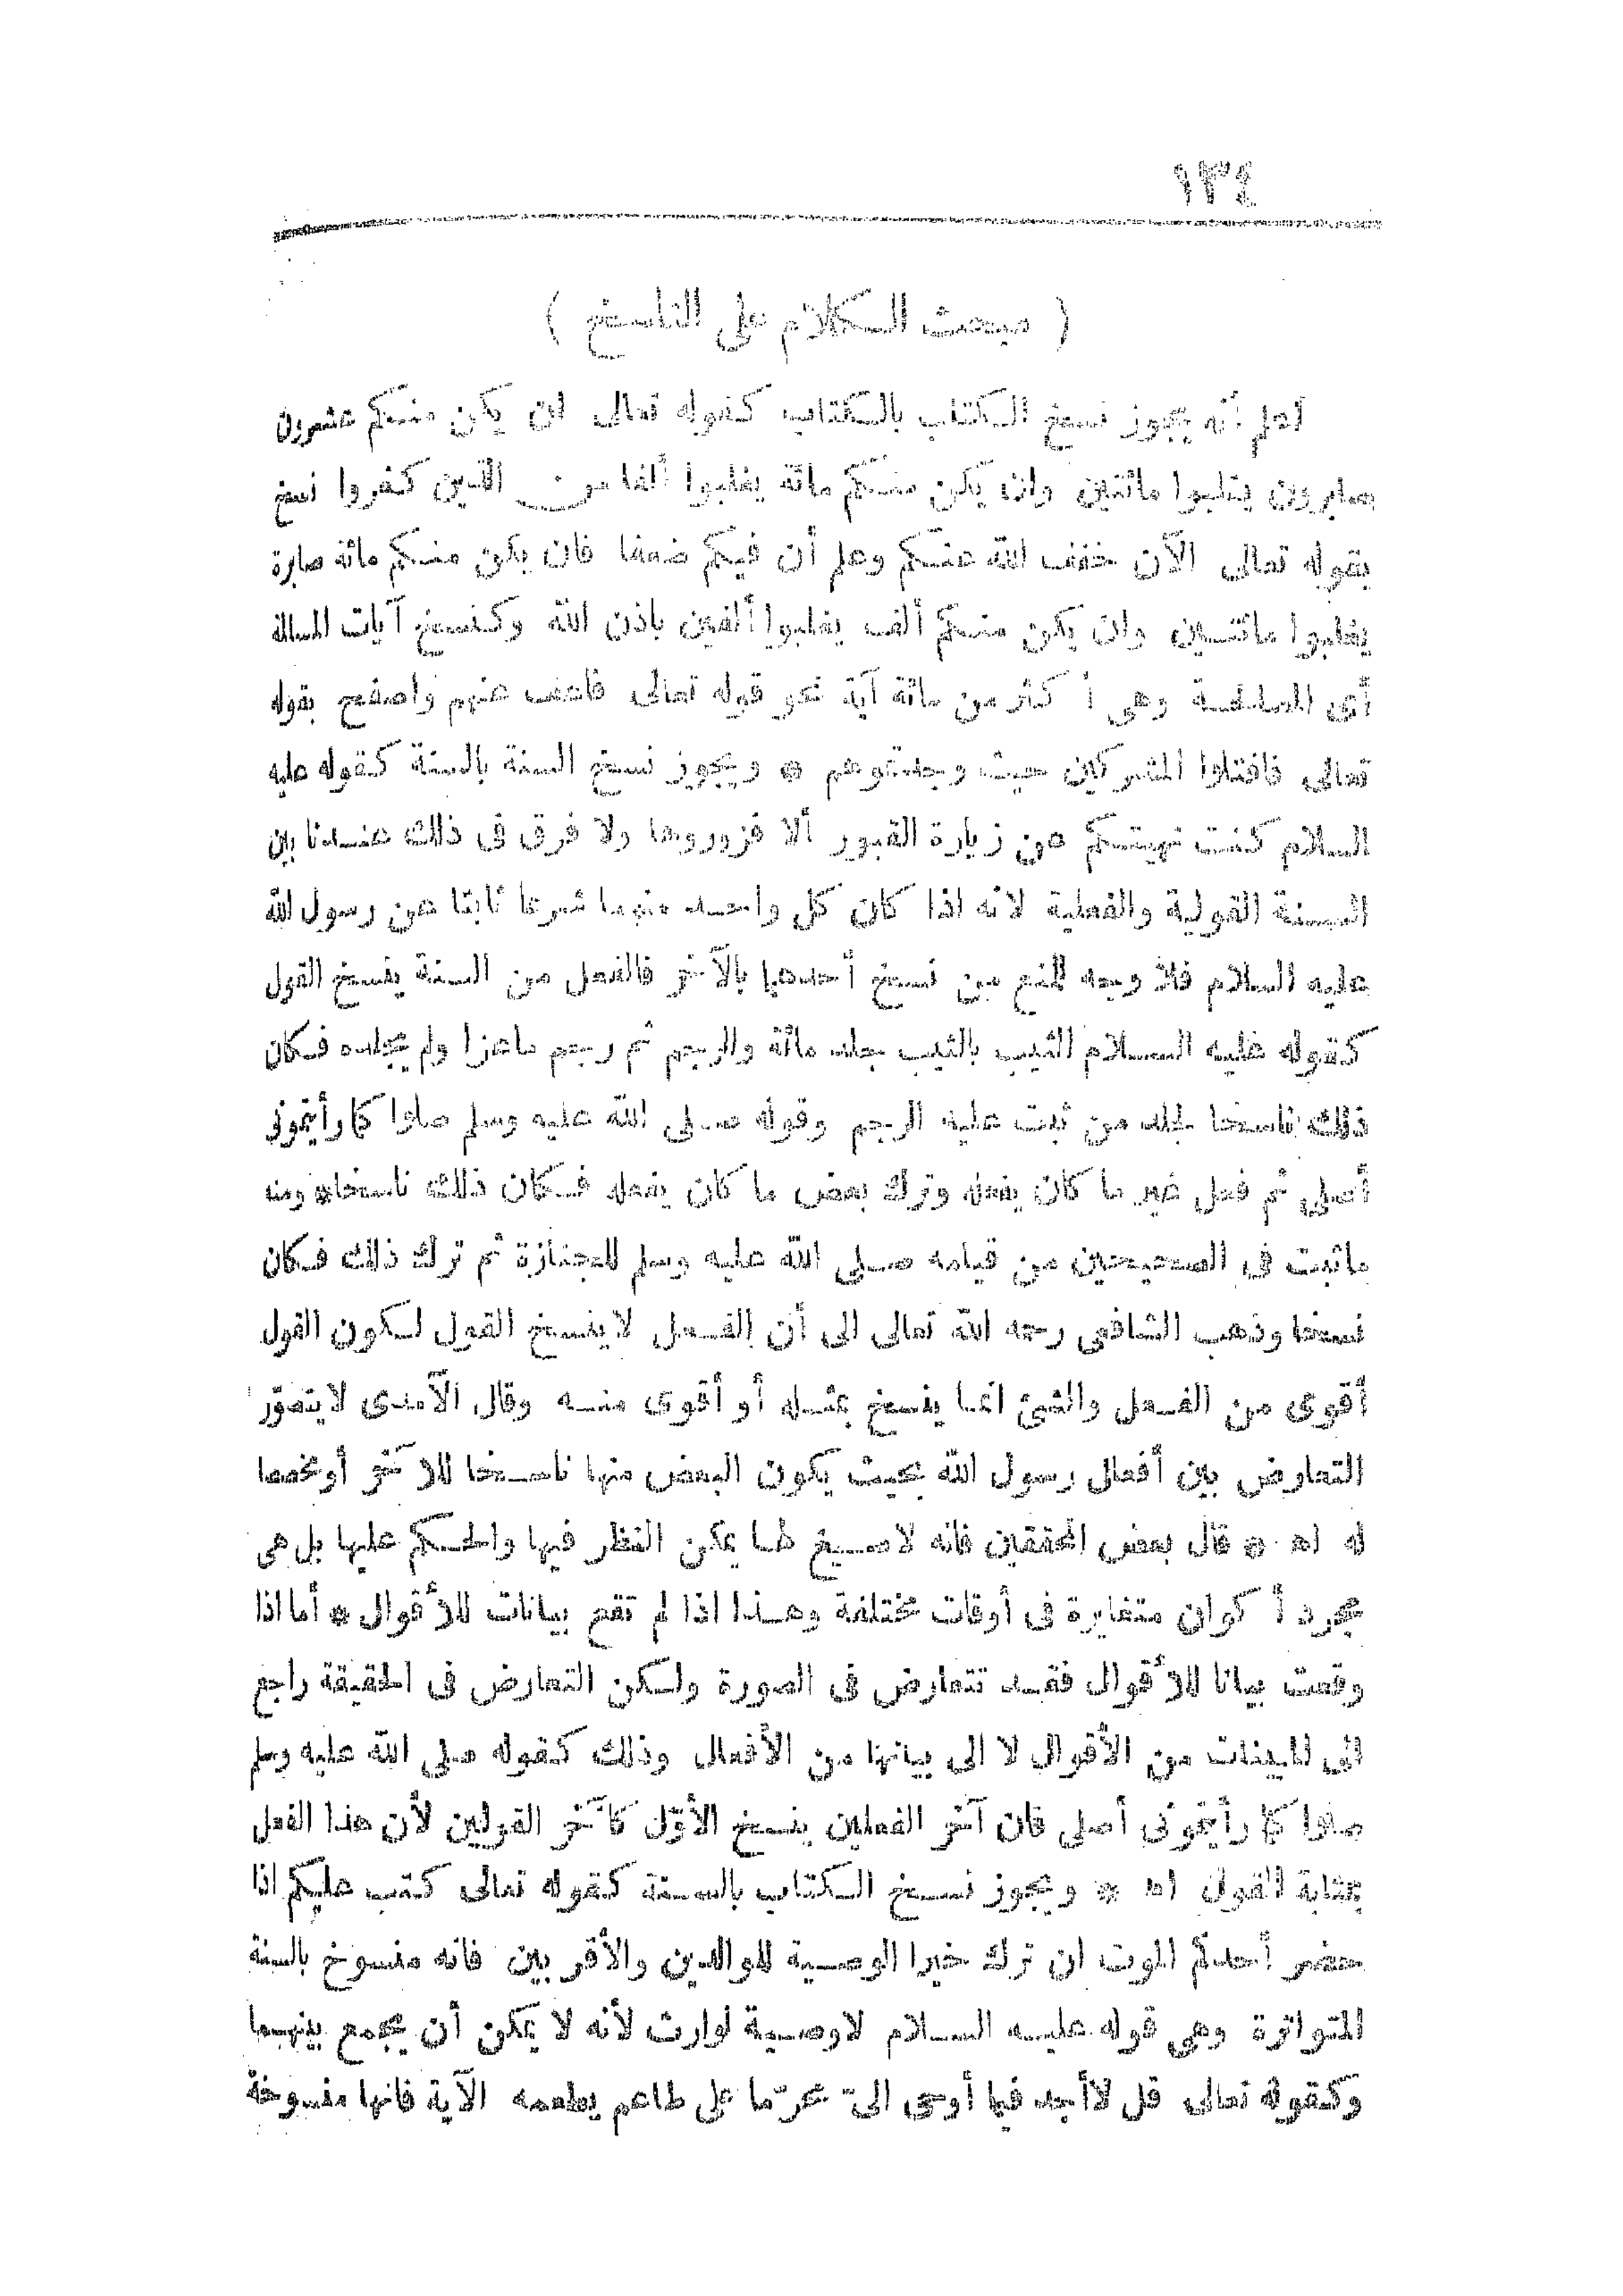 ١٣٤
( مبحث الكلام على الناسخ )
اعلم أنه يجوز نسخ الكتاب بالكتاب كقوله تعالى ان يكن منكم عشرون
صابرون يغلبوا مائتين وان يكن منكم مائة يغلبوا ألفا من الذين كفروا نسخ
بقوله تعالى الآن خفف الله عنكم وعلم أن فيكم ضعفا فان يكن منكم مائة صابرة
يغلبوا مائتين وان يكن منكم ألف يغلبوا ألفين باذن الله وكنسخ آيات المسالمة
أى المصالحة وهى أكثر من مائة آية نحو قوله تعالى فاعف عنهم واصفح بقوله
تعالى فاقتلوا المشركين حيث وجدتموهم * ويجوز نسخ السنة بالسنة كقوله عليه
السلام كنت نهيتكم عن زيارة القبور ألا فزوروها ولا فرق فى ذلك عندنا بين
السنة القولية والفعلية لانه اذا كان كل واحد منهما شرعا ثابتا عن رسول الله
عليه السلام فلا وجه للمنع من نسخ أحدهما بالآخر فالفعل من السنة ينسخ القول
كقوله عليه السلام الثيب بالثيب جلد مائة والرجم ثم رجم ماعزا ولم يجلده فكان
ذلك ناسخا لجلد من ثبت عليه الرجم وقوله صلى الله عليه وسلم صلوا كما رأيتمونى
أصلى ثم فعل غير ما كان يفعله وترك بعض ما كان يفعله فكان ذلك ناسخا* ومنه
ماثبت فى الصحيحين من قيامه صلى الله عليه وسلم للجنازة ثم ترك ذلك فكان
نسخا وذهب الشافعى رحمه الله تعالى الى أن الفعل لا ينسخ القول لكون القول
أقوى من الفعل والشئ انما ينسخ بمثله أو أقوى منه وقال الآمدى لا يتصوّر
التعارض بين أفعال رسول الله بحيث يكون البعض منها ناسخا للآخر أو مخصصا
له اه * قال بعض المحققين فانه لا صيغ لها يمكن النظر فيها والحكم عليها بل هى
مجرد أكوان متغايرة فى أوقات مختلفة وهذا اذا لم تقع بيانات للأقوال * أما اذا
وقعت بيانا للأقوال فقد تتعارض فى الصورة ولكن التعارض فى الحقيقة راجع
الى المبينات من الأقوال لا الى بيانها من الأفعال وذلك كقوله صلى الله عليه وسلم
صلوا كما رأيتمونى أصلى فان آخر الفعلين ينسخ الأوّل كآخر القولين لأن هذا الفعل
بمثابة القول اه * ويجوز نسخ الكتاب بالسنة كقوله تعالى كتب عليكم اذا
حضر أحدكم الموت ان ترك خيرا الوصية للوالدين والأقربين فانه منسوخ بالسنة
المتواترة وهى قوله عليه السلام لا وصية لوارث لأنه لا يمكن أن يجمع بينهما
وكقوله تعالى قل لا أجد فيما أوحى الىّ محرّما على طاعم يطعمه الآية فانها منسوخة